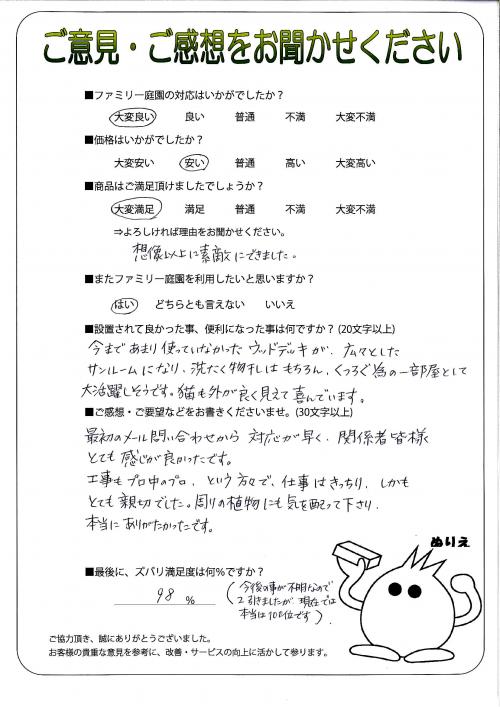 ご意見・ご感想をお聞かせください
■ファミリー庭園の対応はいかがでしたか？
大変良い 良い 普通 不満 大変不満
■価格はいかがでしたか？
大変安い 安い 普通 高い 大変高い
■商品はご満足頂けましたでしょうか？
大変満足 満足 普通 不満 大変不満
⇒よろしければ理由をお聞かせください。
想像以上に素敵にできました。
■またファミリー庭園を利用したいと思いますか？
はい どちらとも言えない いいえ
■設置されて良かった事、便利になった事は何ですか？(20文字以上)
今まであまり使っていなかったウッドデッキが、広々とした
サンルームになり、洗たく物干しはもちろん、くつろぐ為の一部屋として
大活躍しそうです。猫も外が良く見えて喜んでいます。
■ご感想・ご要望などをお書きくださいませ。(30文字以上)
最初のメール問い合わせから対応が早く、関係者皆様
とても感じが良かったです。
工事もプロ中のプロ、という方々で、仕事はきっちり、しかも
とても親切でした。周りの植物にも気を配って下さり、
本当にありがたかったです。
ぬりえ
■最後に、ズバリ満足度は何％ですか？
98 %
(今後の事が不明なので
2引きましたが、現在では
本当は100位です)
ご協力頂き、誠にありがとうございました。
お客様の貴重な意見を参考に、改善・サービスの向上に活かして参ります。